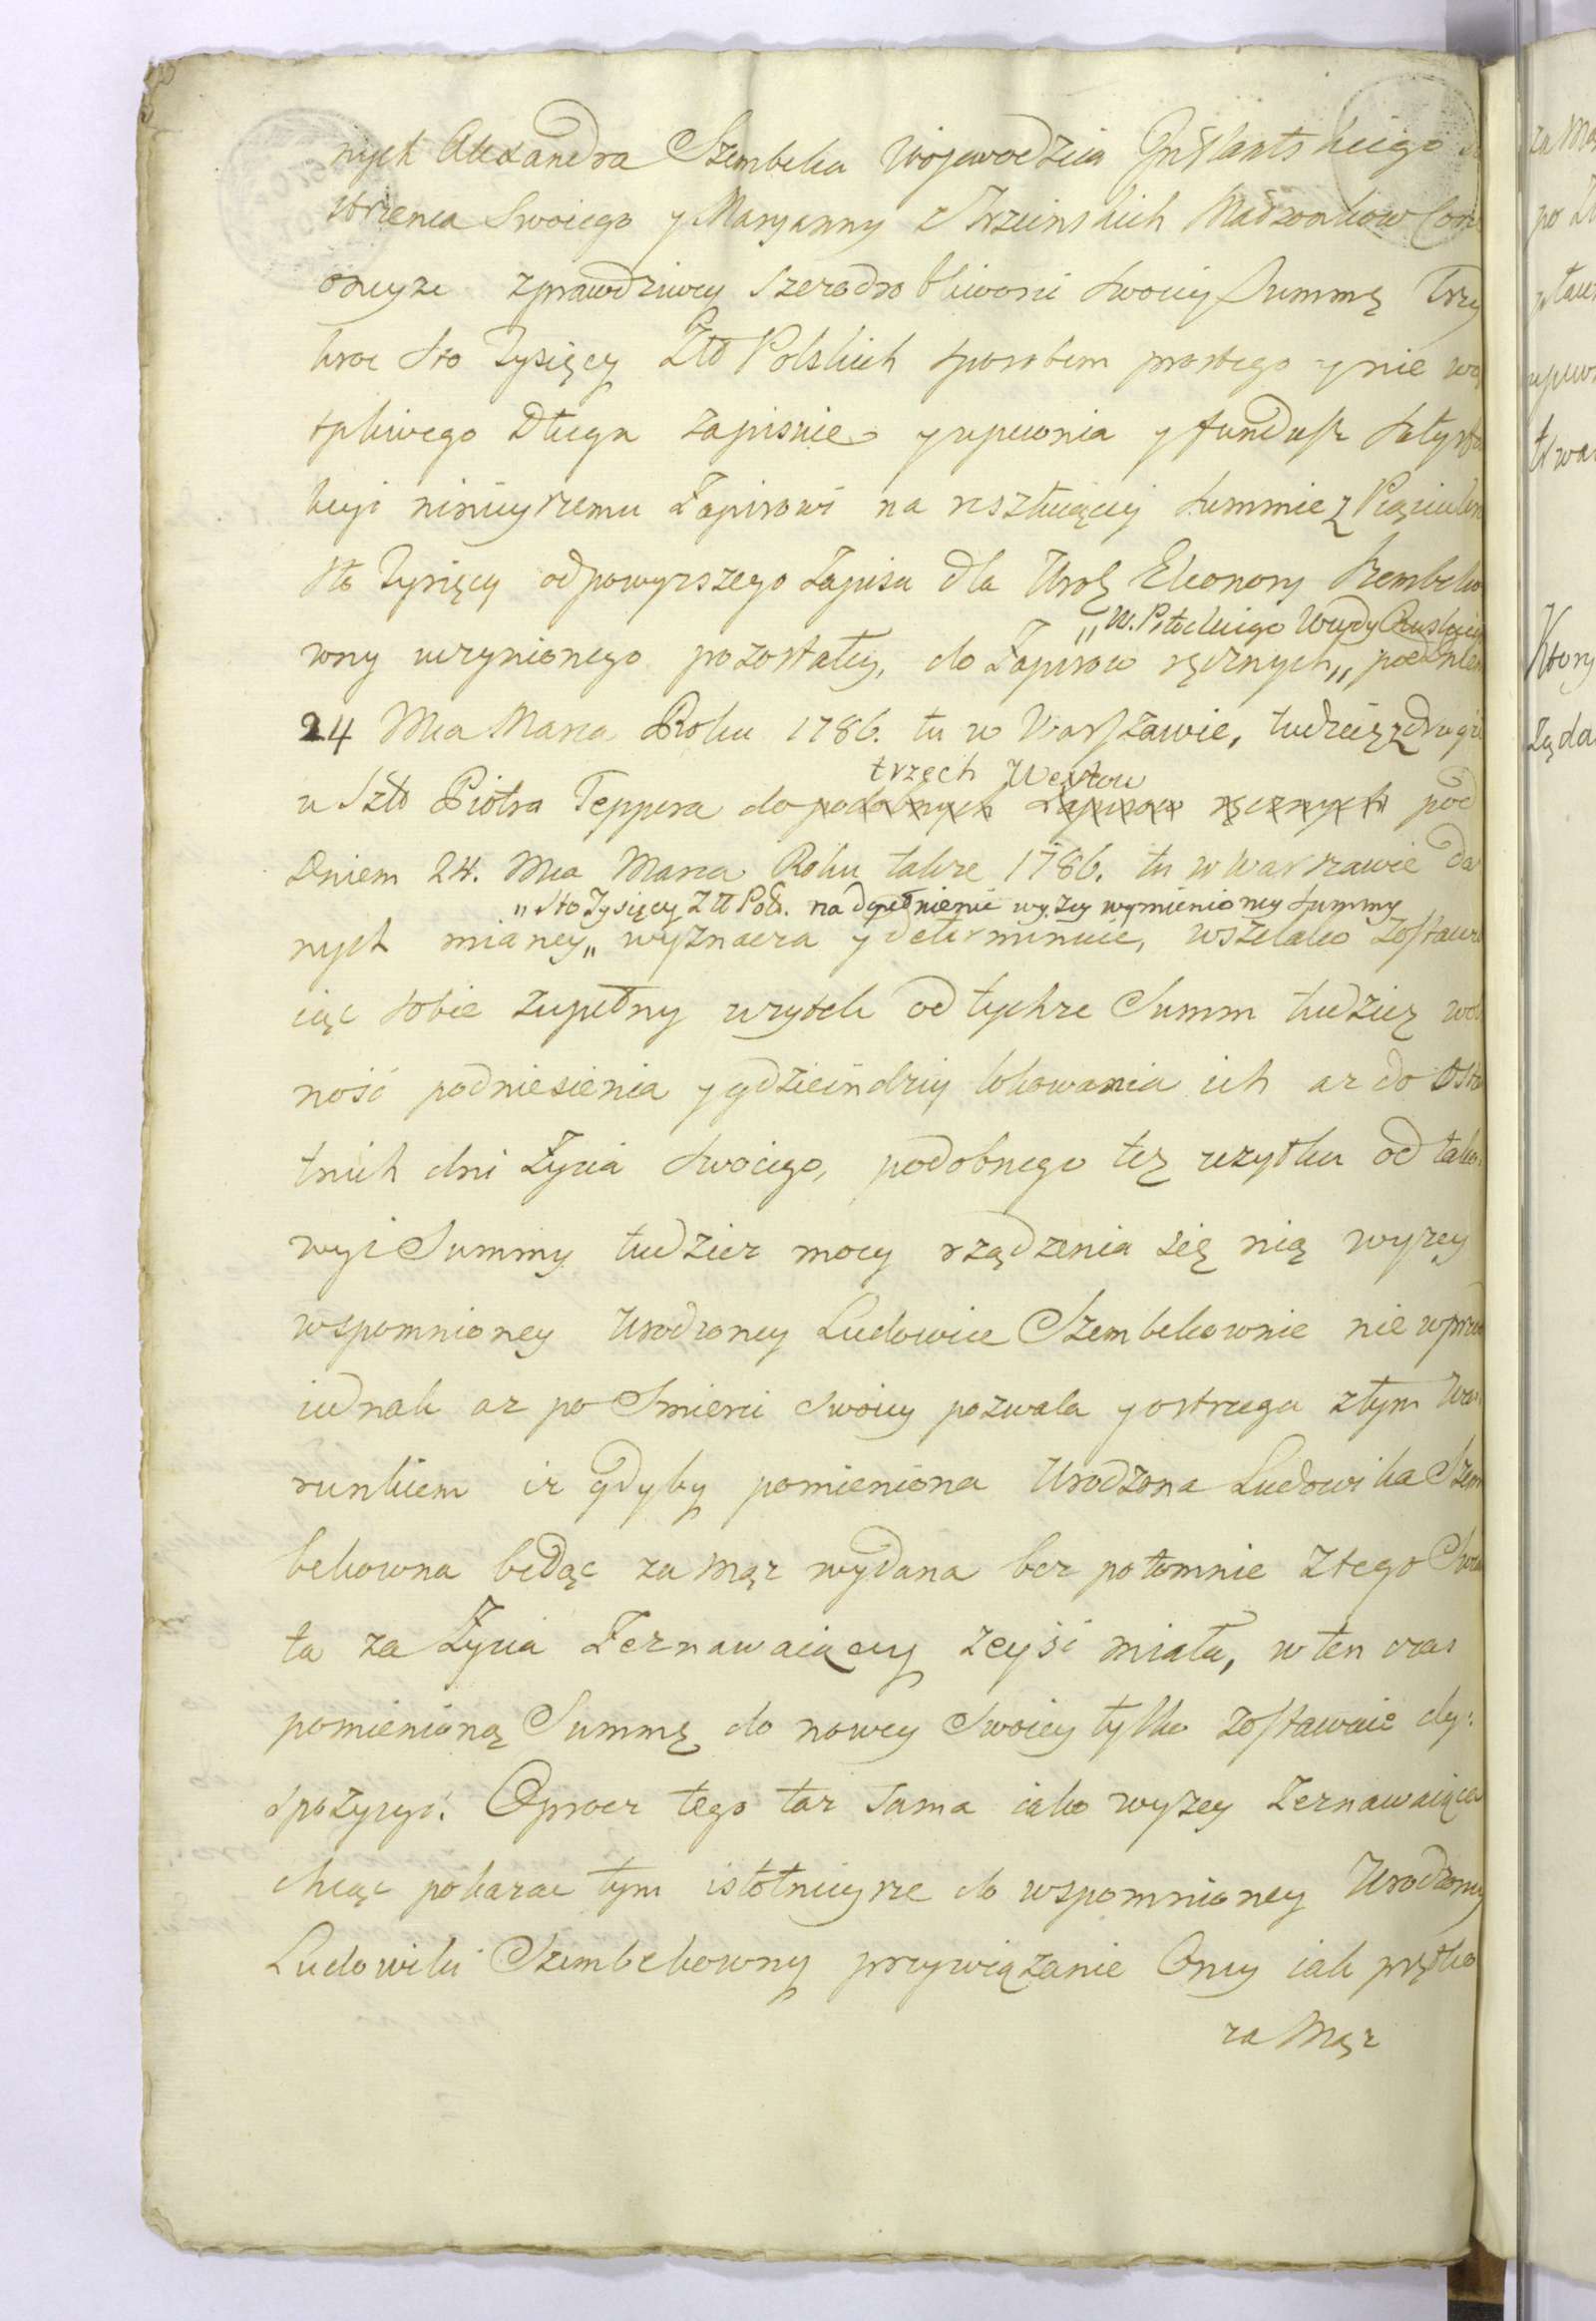 nych Alexandra Szembeka Woiewodzica Inflantskiego
strzenca Swoiego y Maryanny z Małżonkow
oneyże zprawdziwey Szczodrobliwosci Swoiey Summę Trzy
kroc Sto Tysięcy Złł Polskich sposobem prostego y nie wą
tpliwego Długu zapisuie y upewnia y fundusz Satysfa
kcyi ninieyszemu Zapisowi na resztuiącey Summie z Pięciukroc
Sto Tysięcy od powyzszego Zapisu dla Uroż Eleonory Szembeko
„ W. Potockiego Wwdy Ruskiego
wny uczynionego pozostałey, do Zapisow ręcznych „ pod dniem
24 Mca Marca Roku 1786. tu w Warszawie, tudzież z drugie
trzech Wexlow
u Szło Piotra Teppera do podobnych Zapisow ręcznych pod
Dniem 24. Mca Marca Roku takze 1786. tu w Warszawie da
„ Sto Tysięcy Złł Pols. na dopełnienie wyzey wymienioney Summy
nych mianey „ wyznacza y determinuie, wszelako zostawu
iąc sobie zupełny uzytek od tychze Summ tudziez wol
ność podniesienia y gdzieindziey lokowania ich az do Osta
tnich dni Życia Swoiego, podobnego tez uzytku od tako:
wyi Summy tudziez mocy rządzenia się nią wyzey
wspomnioney Urodzoney Ludowice Szembekownie nie wprzod
iednak az po Smierci Swoiey pozwala y ostrzega z tym Wa:
runkiem iz gdyby pomieniona Urodzona Ludowika Szem
bekowna bedąc za mąz wydana bez potomnie z tego Swia
ta za Życia Zeznawaiącey zeyść miała, w ten czas
pomienioną Summę do nowey Swoiey tylko zostawuie dy:
spozycyi. Oprocz tego taz Sama iako wyzey Zeznawaiąca
chcąc pokazac tym istotnieysze do wspomnioney Urodzoney
Ludowiki Szembekowny przywiązanie Oney iak prętko
za Mąz